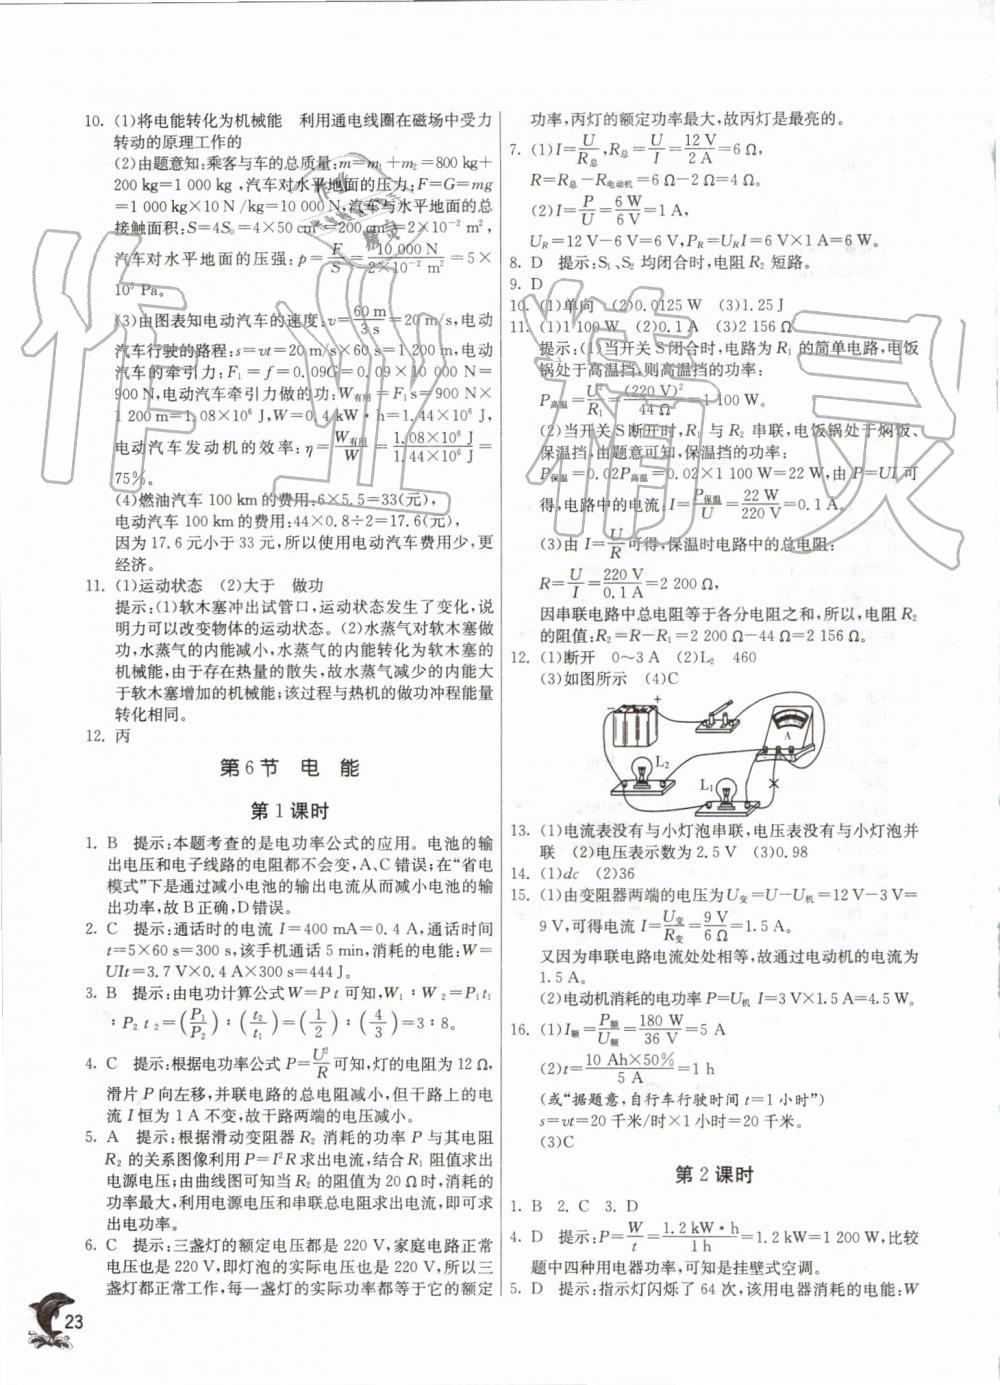 10. (1)将电能转化为机械能　利用通电线圈在磁场中受力
转动的原理工作的
(2)由题意知:乘客与车的总质量:m=m₁+m₂=800 kg+
200 kg=1 000 kg,汽车对水平地面的压力:F=G=mg
=1 000 kg×10 N/kg=10 000 N,汽车与水平地面的总
接触面积:S=4S₀=4×50 cm²=200 cm²=2×10⁻² m²,
汽车对水平地面的压强:p=F/S=10 000 N/(2×10⁻² m²)=5×
10⁵ Pa。
(3)由图表知电动汽车的速度:v=60 m/3 s=20 m/s,电动
汽车行驶的路程:s=vt=20 m/s×60 s=1 200 m,电动
汽车的牵引力:F₁=f=0.09G=0.09×10 000 N=
900 N,电动汽车牵引力做的功:W有用=F₁s=900 N×
1 200 m=1.08×10⁶ J,W=0.4 kW·h=1.44×10⁶ J,
电动汽车发动机的效率:η=W有用/W=1.08×10⁶ J/1.44×10⁶ J=
75%。
(4)燃油汽车 100 km 的费用:6×5.5=33(元),
电动汽车 100 km 的费用:44×0.8÷2=17.6(元),
因为 17.6 元小于 33 元,所以使用电动汽车费用少,更
经济。
11. (1)运动状态　(2)大于　做功
提示:(1)软木塞冲出试管口,运动状态发生了变化,说
明力可以改变物体的运动状态。(2)水蒸气对软木塞做
功,水蒸气的内能减小,水蒸气的内能转化为软木塞的
机械能,由于存在热量的散失,故水蒸气减少的内能大
于软木塞增加的机械能;该过程与热机的做功冲程能量
转化相同。
12. 丙
第 6 节　电　能
第 1 课时
1. B　提示:本题考查的是电功率公式的应用。电池的输
出电压和电子线路的电阻都不会变,A、C 错误;在“省电
模式”下是通过减小电池的输出电流从而减小电池的输
出功率,故 B 正确,D 错误。
2. C　提示:通话时的电流 I=400 mA=0.4 A,通话时间
t=5×60 s=300 s,该手机通话 5 min,消耗的电能:W=
UIt=3.7 V×0.4 A×300 s=444 J。
3. B　提示:由电功计算公式 W=Pt 可知,W₁∶W₂=P₁t₁
∶P₂t₂=(P₁/P₂)∶(t₂/t₁)=(1/2)∶(4/3)=3∶8。
4. C　提示:根据电功率公式 P=U²/R 可知,灯的电阻为 12 Ω,
滑片 P 向左移,并联电路的总电阻减小,但干路上的电
流 I 恒为 1 A 不变,故干路两端的电压减小。
5. A　提示:根据滑动变阻器 R₂ 消耗的功率 P 与其电阻
R₂ 的关系图像利用 P=I²R 求出电流,结合 R₁ 阻值求出
电源电压;由曲线图可知当 R₂ 的阻值为 20 Ω时,消耗的
功率最大,利用电源电压和串联总电阻求出电流,即可求
出电功率。
6. C　提示:三盏灯的额定电压都是 220 V,家庭电路正常
电压也是 220 V,即灯泡的实际电压都是 220 V,所以三
盏灯都正常工作,每一盏灯的实际功率都等于它的额定
功率,丙灯的额定功率最大,故丙灯是最亮的。
7. (1)I=U/R总,R总=U/I=12 V/2 A=6 Ω,
R=R总−R电动机=6 Ω−2 Ω=4 Ω。
(2)I=P/U=6 W/6 V=1 A,
U_R=12 V−6 V=6 V,P_R=U_R I=6 V×1 A=6 W。
8. D　提示:S₁、S₂ 均闭合时,电阻 R₂ 短路。
9. D
10. (1)单向　(2)0.0125 W　(3)1.25 J
11. (1)1 100 W　(2)0.1 A　(3)2 156 Ω
提示:(1)当开关 S 闭合时,电路为 R₁ 的简单电路,电饭
锅处于高温挡,则高温挡的功率:
P高温=U²/R₁=(220 V)²/44 Ω=1 100 W。
(2)当开关 S 断开时,R₁ 与 R₂ 串联,电饭锅处于焖饭、
保温挡,由题意可知,保温挡的功率:
P保温=0.02P高温=0.02×1 100 W=22 W,由 P=UI 可
得,电路中的电流:I=P保温/U=22 W/220 V=0.1 A。
(3)由 I=U/R 可得,保温时电路中的总电阻:
R=U/I=220 V/0.1 A=2 200 Ω,
因串联电路中总电阻等于各分电阻之和,所以,电阻 R₂
的阻值:R₂=R−R₁=2 200 Ω−44 Ω=2 156 Ω。
12. (1)断开　0～3 A　(2)L₂　460
(3)如图所示　(4)C
− +
A
L₂
L₁
13. (1)电流表没有与小灯泡串联,电压表没有与小灯泡并
联　(2)电压表示数为 2.5 V　(3)0.98
14. (1)dc　(2)36
15. (1)由变阻器两端的电压为 U变=U−U机=12 V−3 V=
9 V,可得电流 I=U变/R变=9 V/6 Ω=1.5 A。
又因为串联电路电流处处相等,故通过电动机的电流为
1.5 A。
(2)电动机消耗的电功率 P=U机 I=3 V×1.5 A=4.5 W。
16. (1)I额=P额/U额=180 W/36 V=5 A
(2)t=10 Ah×50%/5 A=1 h
(或“据题意,自行车行驶时间 t=1 小时”)
s=vt=20 千米/时×1 小时=20 千米。
(3)C
第 2 课时
1. B　2. C　3. D
4. D　提示:P=W/t=1.2 kW·h/1 h=1.2 kW=1 200 W,比较
题中四种用电器功率,可知是挂壁式空调。
5. D　提示:指示灯闪烁了 64 次,该用电器消耗的电能:W
23
作业精灵